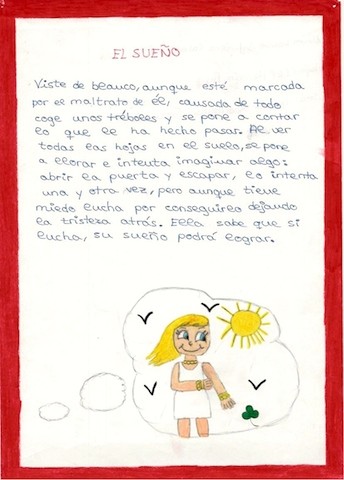 EL SUEÑO
Viste de blanco, aunque esté marcada
por el maltrato de él, causada de todo
coge unos tréboles y se pone a contar
lo que le ha hecho pasar. Al ver
todas las hojas en el suelo, se pone
a llorar e intenta imaginar algo:
abrir la puerta y escapar, lo intenta
una y otra vez, pero aunque tiene
miedo lucha por conseguirlo dejando
la tristeza atrás. Ella sabe que si
lucha, su sueño podrá lograr.